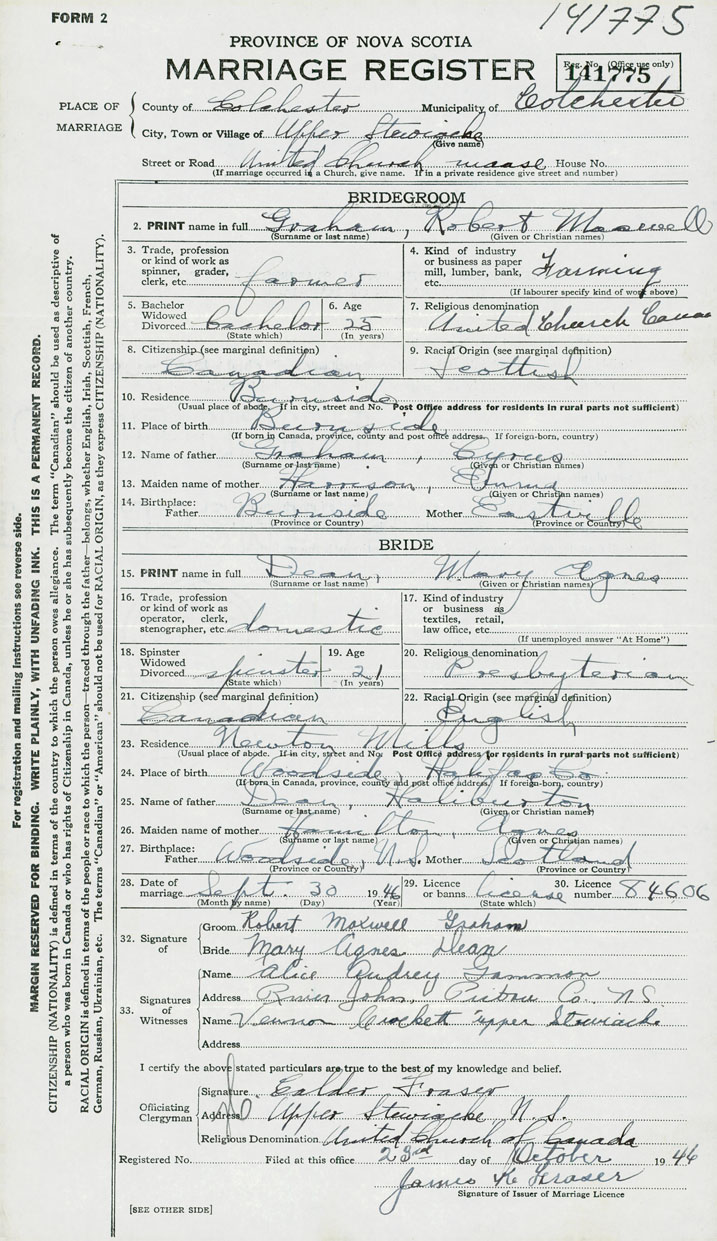 FORM 2
141775
PROVINCE OF NOVA SCOTIA
MARRIAGE REGISTER
Reg. No. (Office use only)
141775
PLACE OF MARRIAGE
County of Colchester Municipality of Colchester
City, Town or Village of Upper Stewiacke
(Give name)
Street or Road United Church manse House No.
(If marriage occurred in a Church, give name. If in a private residence give street and number)
BRIDEGROOM
2. PRINT name in full Graham, Robert Maxwell
(Surname or last name) (Given or Christian names)
3. Trade, profession or kind of work as spinner, grader, clerk, etc. farmer
4. Kind of industry or business as paper mill, lumber, bank, etc. Farming
(If labourer specify kind of work above)
5. Bachelor Widowed Divorced Bachelor
(State which)
6. Age 25
(In years)
7. Religious denomination
United Church Canada
8. Citizenship (see marginal definition)
Canadian
9. Racial Origin (see marginal definition)
Scottish
10. Residence Burnside
(Usual place of abode. If in city, street and No. Post Office address for residents in rural parts not sufficient)
11. Place of birth Burnside
(If born in Canada, province, county and post office address. If foreign-born, country)
12. Name of father Graham, Cyrus
(Surname or last name) (Given or Christian names)
13. Maiden name of mother Harrison, Emma
(Surname or last name) (Given or Christian names)
14. Birthplace: Father Burnside Mother Eastville
(Province or Country) (Province or Country)
BRIDE
15. PRINT name in full Dean, Mary Agnes
(Surname or last name) (Given or Christian names)
16. Trade, profession or kind of work as operator, clerk, stenographer, etc. domestic
17. Kind of industry or business as textiles, retail, law office, etc.
(If unemployed answer "At Home")
18. Spinster Widowed Divorced spinster
(State which)
19. Age 21
(In years)
20. Religious denomination
Presbyterian
21. Citizenship (see marginal definition)
Canadian
22. Racial Origin (see marginal definition)
English
23. Residence Newton Mills
(Usual place of abode. If in city, street and No. Post Office address for residents in rural parts not sufficient)
24. Place of birth Woodside, Halifax Co.
(If born in Canada, province, county and post office address. If foreign-born, country)
25. Name of father Dean, Haliburton
(Surname or last name) (Given or Christian names)
26. Maiden name of mother Hamilton, Agnes
(Surname or last name) (Given or Christian names)
27. Birthplace: Father Woodside, N.S. Mother Scotland
(Province or Country) (Province or Country)
28. Date of marriage Sept. 30 1946
(Month by name) (Day) (Year)
29. Licence or banns license
(State which)
30. Licence number 84606
32. Signature of
Groom Robert Maxwell Graham
Bride Mary Agnes Dean
33. Signatures of Witnesses
Name Alice Audrey Gammon
Address River John, Pictou Co., N.S.
Name Vernon Crockett upper Stewiacke
Address
I certify the above stated particulars are true to the best of my knowledge and belief.
Officiating Clergyman
Signature Calder Fraser
Address Upper Stewiacke N.S.
Religious Denomination United Church of Canada
Registered No. Filed at this office 23rd day of October 1946
James K Fraser
Signature of Issuer of Marriage Licence
[SEE OTHER SIDE]
For registration and mailing instructions see reverse side.
MARGIN RESERVED FOR BINDING. WRITE PLAINLY, WITH UNFADING INK. THIS IS A PERMANENT RECORD.
CITIZENSHIP (NATIONALITY) is defined in terms of the country to which the person owes allegiance. The term "Canadian" should be used as descriptive of
a person who was born in Canada or who has rights of Citizenship in Canada, unless he or she has subsequently become the citizen of another country.
RACIAL ORIGIN is defined in terms of the people or race to which the person—traced through the father—belongs, whether English, Irish, Scottish, French,
German, Russian, Ukrainian, etc. The terms "Canadian" or "American" should not be used for RACIAL ORIGIN, as they express CITIZENSHIP (NATIONALITY).